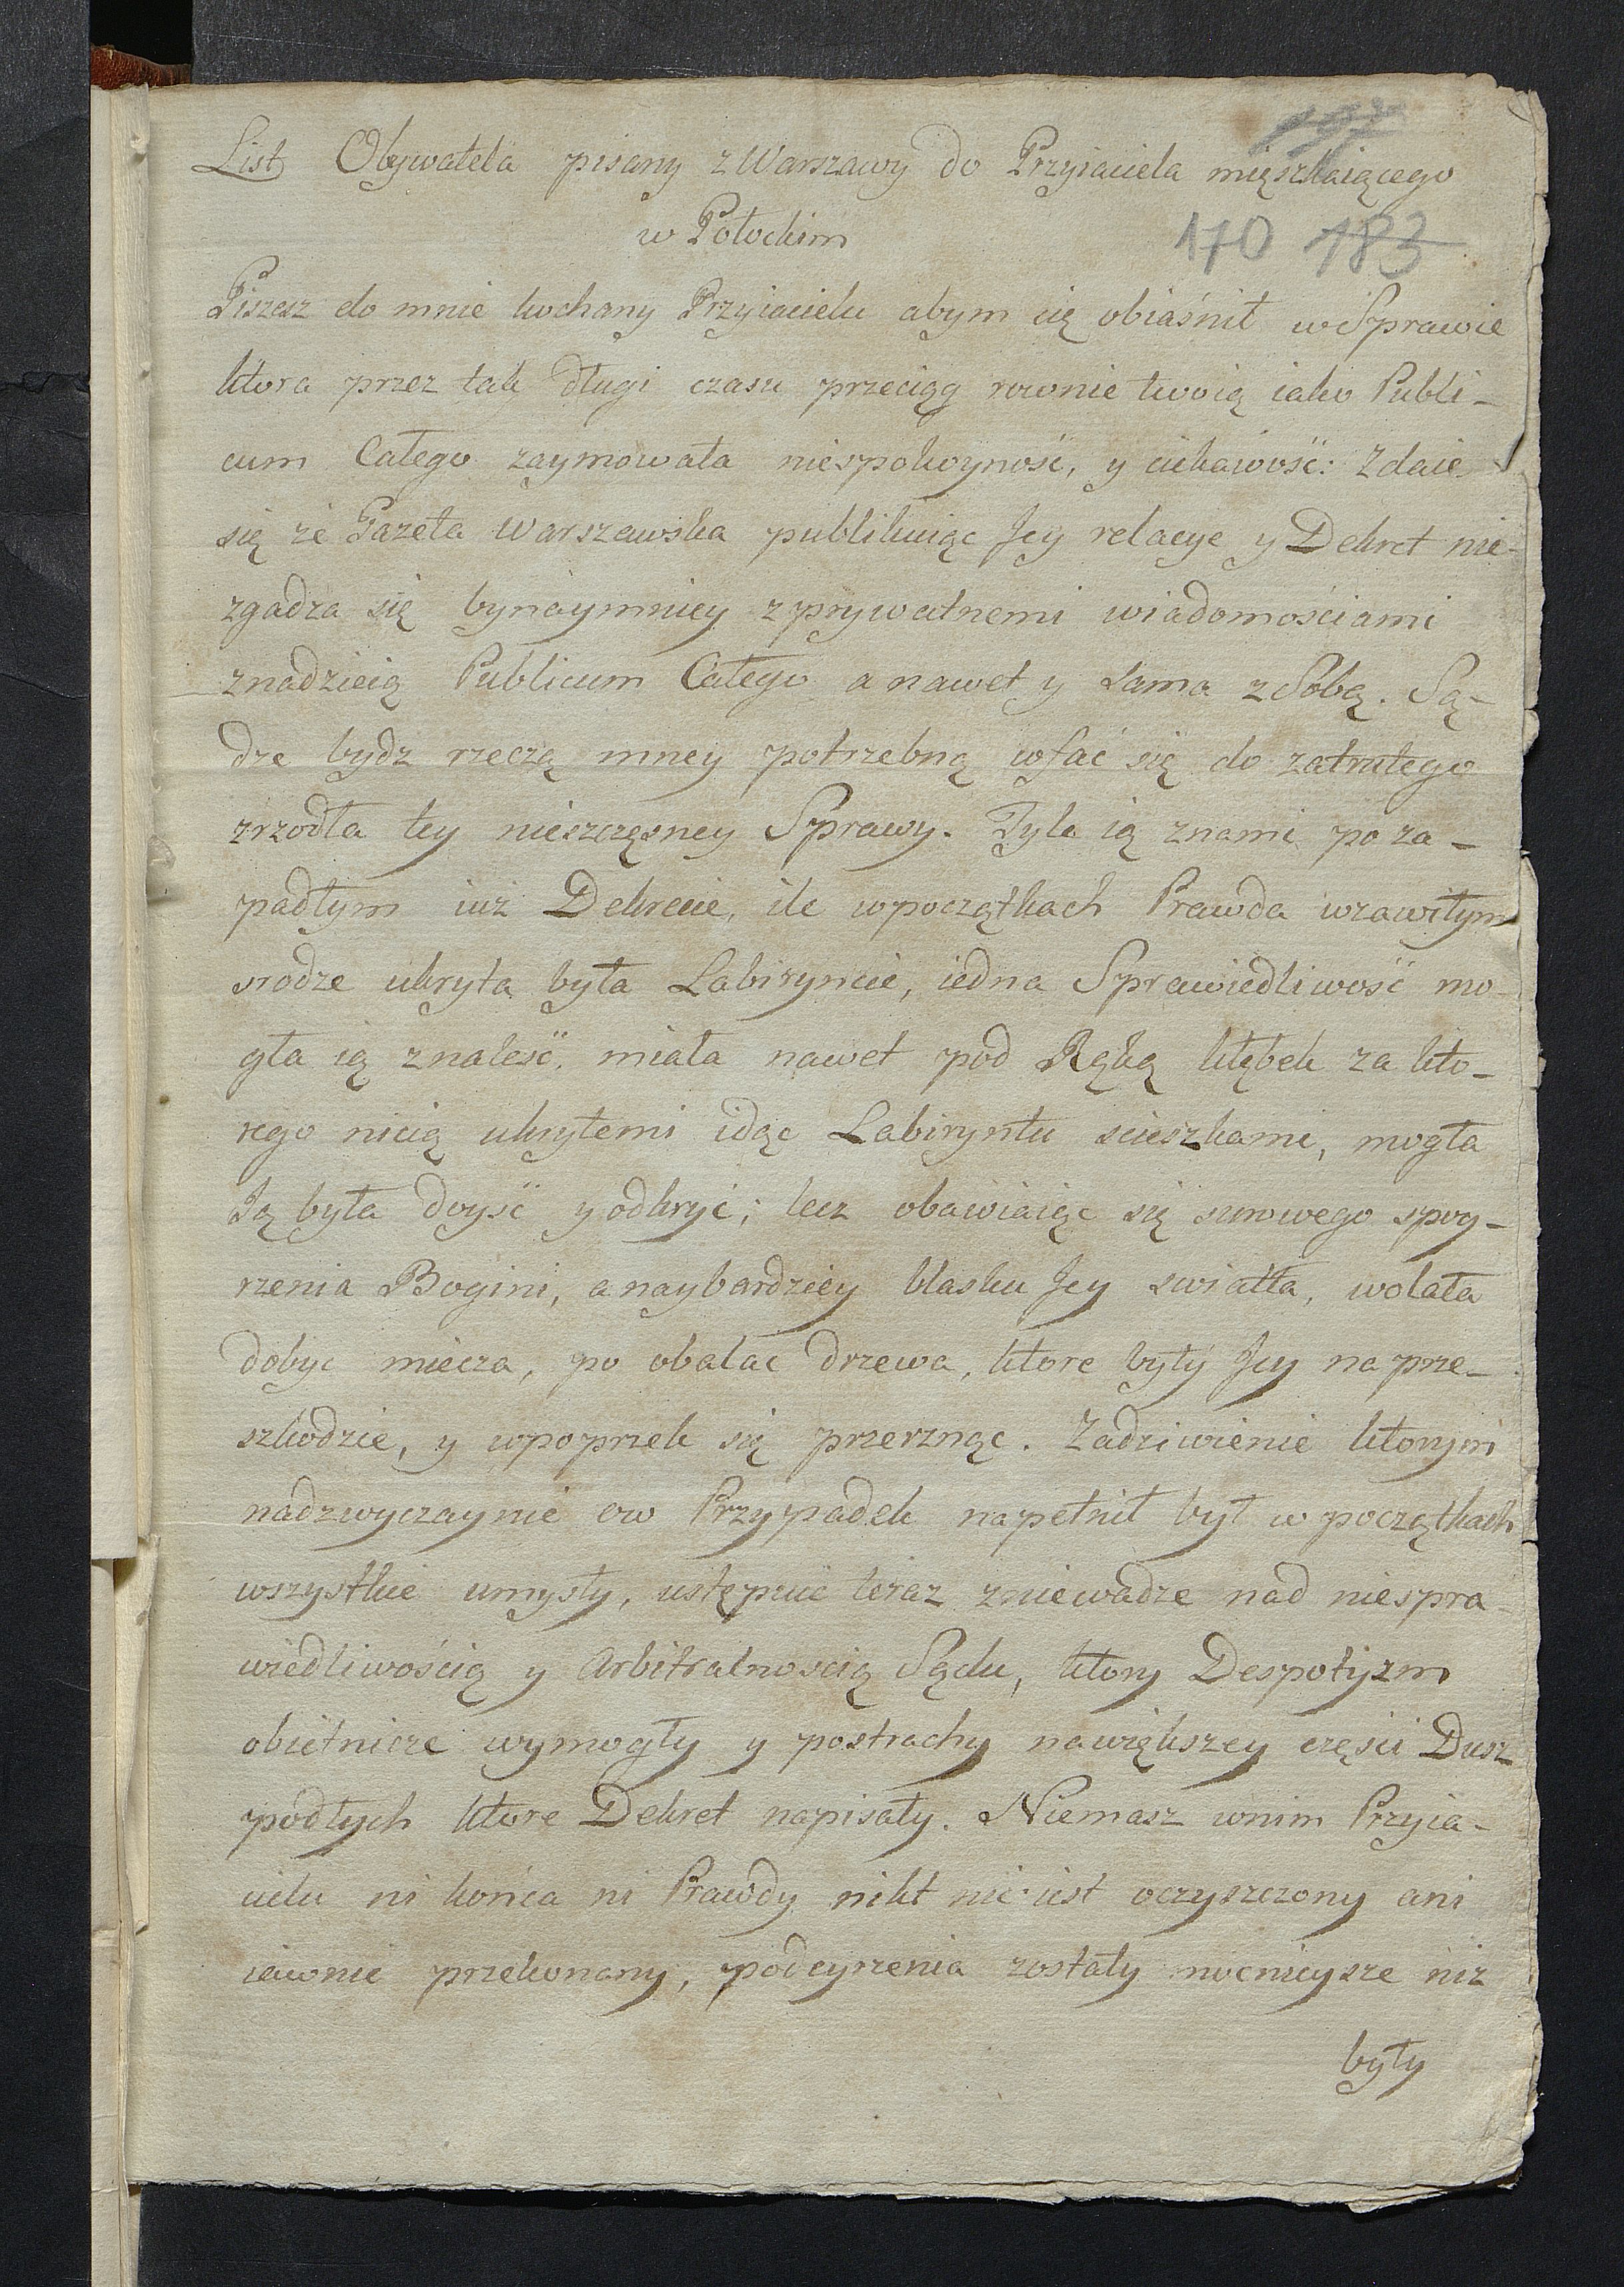 197
List Obywatela pisany z Warszawy do Przyiaciela mięszkaiącego
w Połockim
170 183
Piszesz do mnie kochany Przyiacielu abym cię obiaśnił w Sprawie
ktora przez tak długi czasu przeciąg rownie twoią iako Publi-
cum Całego zaymowała niespokoyność, y ciekawość: Zdaie
się że Gazeta Warszawska publikuiąc Jey relacye y Dekret nie-
zgadza się bynaymniey z prywatnemi wiadomościami
z nadzieią Publicum Całego a nawet y sama z Sobą. Są-
dze bydz rzeczą mney potrzebną wfać się do zatrutego
zrzodła tey nieszczęsney Sprawy. Tyle ią znami po za-
padłym iuż Dekrecie, ile w początkach Prawda w zawiłym
srodze ukryta była Labiryncie, iedna Sprawiedliwość mo-
gła ią znaleść, miała nawet pod Ręką kłębek za kto-
rego nicią ukrytemi idąc Labiryntu scieszkami, mogła
Ją była doyść y odkryć; lecz obawiaiąc się surowego spoy-
rzenia Bogini, a naybardziey blasku Jey swiatła, wolała
dobyc miecza, po obalac drzewa, ktore były Jey na prze-
szkodzie, y w poprzek się przerznąc. Zadziwienie ktorym
nadzwyczaynie ow Przypadek napełnił był w początkach
wszystkie umysły, ustępuie teraz zniewadze nad niespra
wiedliwością y Arbitralnoscią Sądu, ktory Despotyzm
obietnice wymogły y postrachy na większey części Dusz
podłych ktore Dekret napisały. Niemasz w nim Przyia-
cielu ni końca ni Prawdy nikt nie iest oczyszczony ani
iawnie przekonany, podeyrzenia zostały mocnieysze niz
były